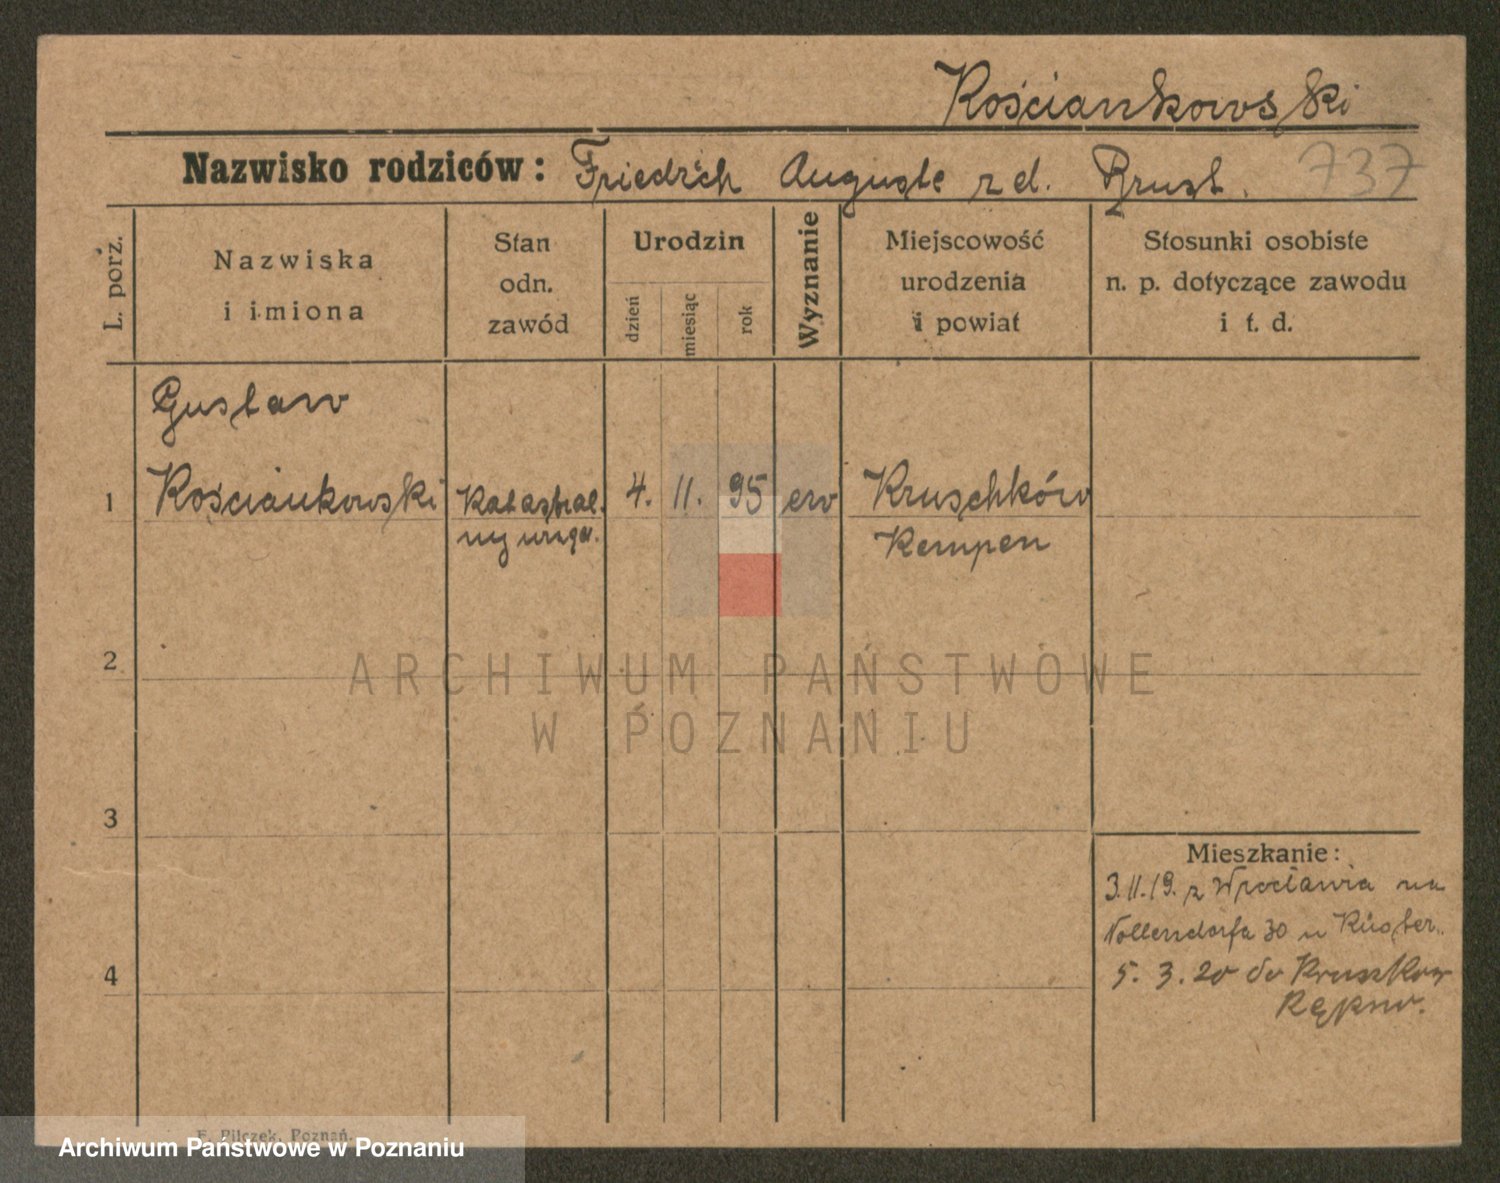 Kościankowski
Nazwisko rodziców: Friedrich Auguste z d. Brust. 737
L. porz.
Nazwiska
i imiona
Stan
odn.
zawód
Urodzin
dzień
miesiąc
rok
Wyznanie
Miejscowość
urodzenia
i powiat
Stosunki osobiste
n. p. dotyczące zawodu
i t. d.
Gustaw
1 Kościankowski Katastral. 4. 11. 95 ew Kruschków
Kempen
2
ARCHIWUM PAŃSTWOWE
W POZNANIU
3
Mieszkanie:
3.11.19. z Wrocławia na
Nollendorfa 30 u Küster..
4
5. 3. 20 do Kruszkow
Kępno.
F. Pilczek, Poznań.
Archiwum Państwowe w Poznaniu